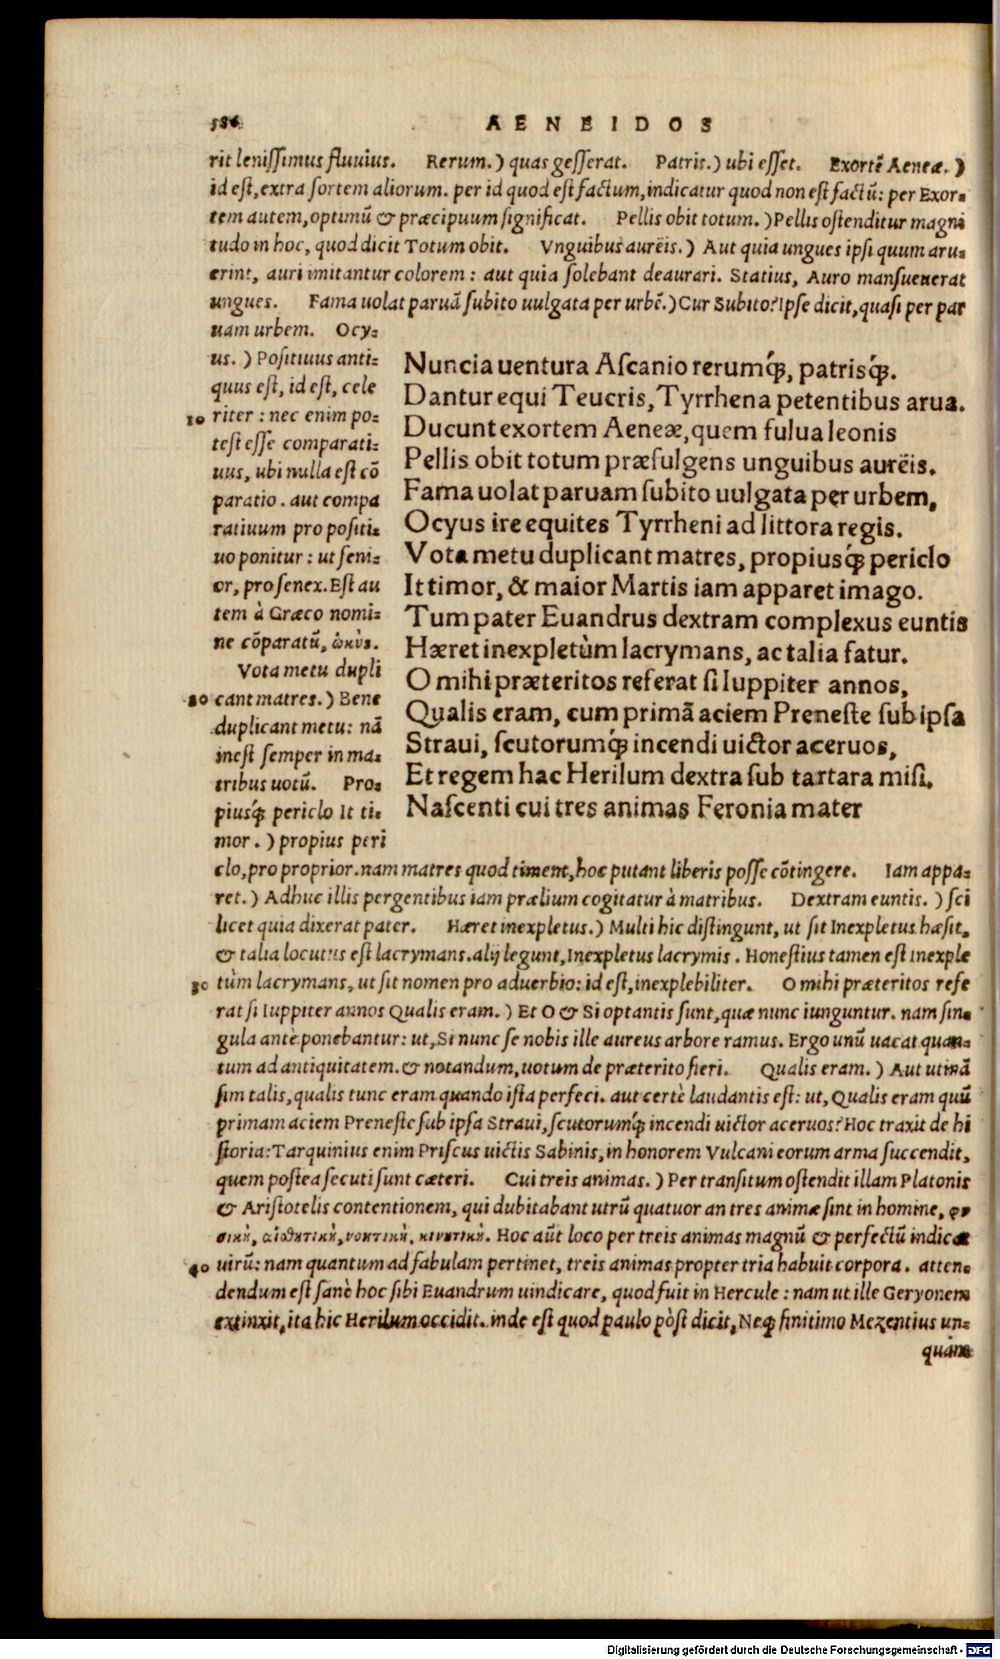 586 AENEIDOS
rit lenissimus fluuius. Rerum.) quas gesserat. Patris.) ubi esset. Exortē Aeneæ.)
id est, extra sortem aliorum. per id quod est factum, indicatur quod non est factū: per Exor-
tem autem, optimū & præcipuum significat. Pellis obit totum.) Pellis ostenditur magni
tudo in hoc, quod dicit Totum obit. Vnguibus aureis.) Aut quia ungues ipsi quum aru-
erint, auri imitantur colorem: aut quia solebant deaurari. Statius, Auro mansueuerat
ungues. Fama uolat paruā subito uulgata per urbē.) Cur Subito? Ipse dicit, quasi per par
uam urbem. Ocy-
us.) Positiuus anti-
quus est, id est, cele
10 riter: nec enim po-
test esse comparati-
uus, ubi nulla est cō
paratio. aut compa
ratiuum pro positi-
uo ponitur: ut seni-
or, pro senex. Est au
tem à Græco nomi-
ne cōparatū, ὠκὺς.
Vota metu dupli
20 cant matres.) Bene
duplicant metu: nā
inest semper in ma-
tribus uotū. Pro-
piusq́; periclo It ti-
mor.) propius peri
Nuncia uentura Ascanio rerumq́;, patrisq́;.
Dantur equi Teucris, Tyrrhena petentibus arua.
Ducunt exortem Aeneæ, quem fulua leonis
Pellis obit totum præfulgens unguibus aureis.
Fama uolat paruam subito uulgata per urbem,
Ocyus ire equites Tyrrheni ad littora regis.
Vota metu duplicant matres, propiusq́; periclo
It timor, & maior Martis iam apparet imago.
Tum pater Euandrus dextram complexus euntis
Hæret inexpletùm lacrymans, ac talia fatur.
O mihi præteritos referat si Iuppiter annos,
Qualis eram, cum primā aciem Preneste sub ipsa
Straui, scutorumq́; incendi uictor aceruos,
Et regem hac Herilum dextra sub tartara misi,
Nascenti cui tres animas Feronia mater
clo, pro proprior. nam matres quod timent, hoc putant liberis posse cōtingere. Iam appa-
ret.) Adhuc illis pergentibus iam prælium cogitatur à matribus. Dextram euntis.) sci
licet quia dixerat pater. Hæret inexpletus.) Multi hic distingunt, ut sit Inexpletus hæsit,
& talia locutus est lacrymans. alij legunt, Inexpletus lacrymis. Honestius tamen est Inexple
30 tùm lacrymans, ut sit nomen pro aduerbio: id est, inexplebiliter. O mihi præteritos refe
rat si Iuppiter annos Qualis eram.) Et O & Si optantis sunt, quæ nunc iunguntur. nam sin-
gula antè ponebantur: ut, Si nunc se nobis ille aureus arbore ramus. Ergo unū uacat quan-
tum ad antiquitatem. & notandum, uotum de præterito fieri. Qualis eram.) Aut utinā
sim talis, qualis tunc eram quando ista perfeci. aut certè laudantis est: ut, Qualis eram quū
primam aciem Preneste sub ipsa Straui, scutorumq́; incendi uictor aceruos? Hoc traxit de hi
storia: Tarquinius enim Priscus uictis Sabinis, in honorem Vulcani eorum arma succendit,
quem postea secuti sunt cæteri. Cui treis animas.) Per transitum ostendit illam Platonis
& Aristotelis contentionem, qui dubitabant utrū quatuor an tres animæ sint in homine, φυ
σικὴ, αἰσθητικὴ, νοητικὴ, κινητικὴ. Hoc aūt loco per treis animas magnū & perfectū indicat
40 uirū: nam quantum ad fabulam pertinet, treis animas propter tria habuit corpora. atten-
dendum est sanè hoc sibi Euandrum uindicare, quod fuit in Hercule: nam ut ille Geryonem
extinxit, ita hic Herilum occidit. inde est quod paulo pòst dicit, Neq; finitimo Mezentius un-
quàm
Digitalisierung gefördert durch die Deutsche Forschungsgemeinschaft - DFG